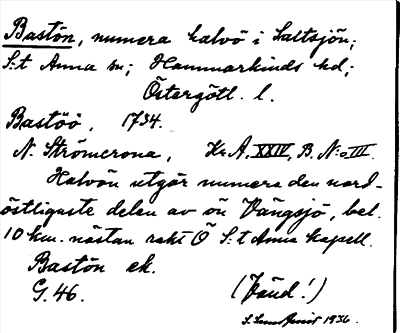 Bastön, numera halvö i Saltsjön;
S:t Anna sn; Hammarkinds hd;
Östergötl. l.
Bastöö, 1734.
N. Strömcrona, Kr. A. XXIV, B. N:o III.
Halvön utgör numera den nord-
östligaste delen av ön Vängsjö, bel.
10 km. nästan rakt Ö S:t Anna kapell.
Bastön ek.
G. 46. (Vänd!)
1936.